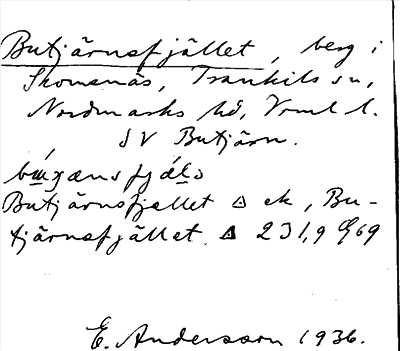 Butjärnsfjället, berg i
Skomenäs, Trankils sn,
Nordmarks hd, Vrml l.
SV Butjärn.
Butjärnsfjellet △ ek, Bu-
tjärnsfjället △ 231,9 G69
E. Andersson 1936.